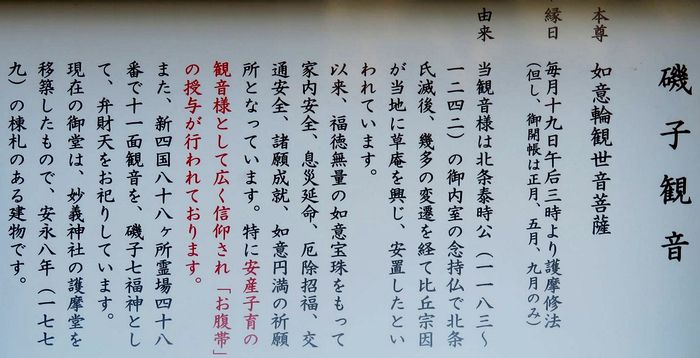 磯子観音
本尊 如意輪観世音菩薩
縁日 毎月十九日午后三時より護摩修法
(但し、御開帳は正月、五月、九月のみ)
由来 当観音様は北条泰時公(一一八三〜
一二四二)の御内室の念持仏で北条
氏滅後、幾多の変遷を経て比丘宗因
が当地に草庵を興じ、安置したとい
われています。
以来、福徳無量の如意宝珠をもって
家内安全、息災延命、厄除招福、交
通安全、諸願成就、如意円満の祈願
所となっています。特に安産子育の
観音様として広く信仰され「お腹帯」
の授与が行われております。
また、新四国八十八ヶ所霊場四十八
番で十一面観音を、磯子七福神とし
て、弁財天をお祀りしています。
現在の御堂は、妙義神社の護摩堂を
移築したもので、安永八年(一七七
九)の棟札のある建物です。